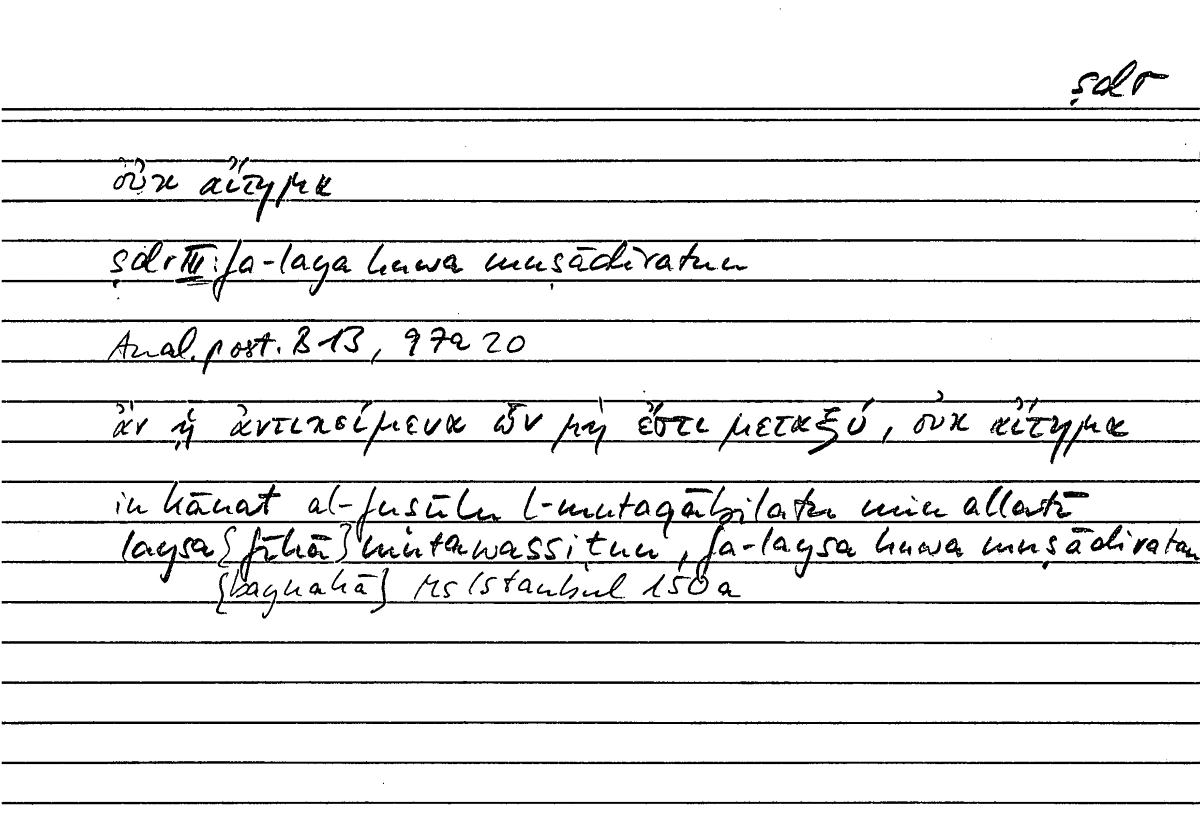 ṣdr
οὐκ αἴτημα
ṣdr III: fa-laysa huwa muṣādiratun
Anal. post. B 13, 97a 20
ἂν ᾖ ἀντικείμενα ὧν μή ἐστι μεταξύ, οὐκ αἴτημα
in kānat al-fuṣūlu l-mutaqābilatu min allatī
laysa {fīhā} mutawassiṭun, fa-laysa huwa muṣādiratan
{baynahā} Ms Istanbul 150a